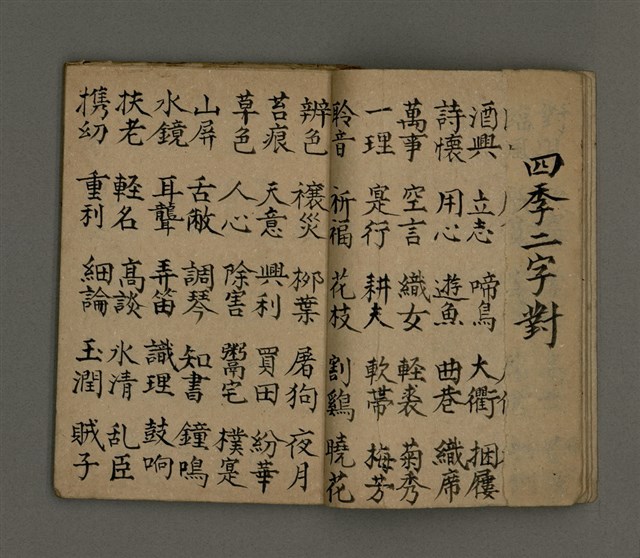 四季二字對
酒興 立志 啼鳥 大衢 捆屨
詩懷 用心 遊魚 曲巷 織席
萬事 空言 織女 軽裘 菊秀
一理 寔行 耕夫 軟帶 梅芳
聆音 祈福 花枝 割鷄 曉花
辨色 禳災 柳葉 屠狗 夜月
苔痕 天意 興利 買田 紛華
草色 人心 除害 鬻宅 樸寔
山屏 舌敝 調琴 知書 鐘鳴
水鏡 耳聾 弄笛 識理 鼓响
扶老 軽名 高談 氷清 乱臣
携幼 重利 細論 玉潤 賊子